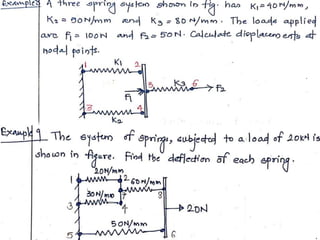 Example8 A three spring system shown in fig. has K₁=40N/mm,
K₂ = 50N/mm and K₃ = 80 N/mm. The loads applied
are F₁ = 100N and F₂ = 50N. Calculate displacements at
nodal points.
1 K₁ 2
K₃ 6
F₁ 5 → F₂
3 4
K₂
Example 9 The system of springs, subjected to a load of 20kN is
shown in figure. Find the deflection of each spring.
20N/mm
1 2 60N/mm
30N/mm 7 8
3 4
→ 20N
50N/mm
5 6